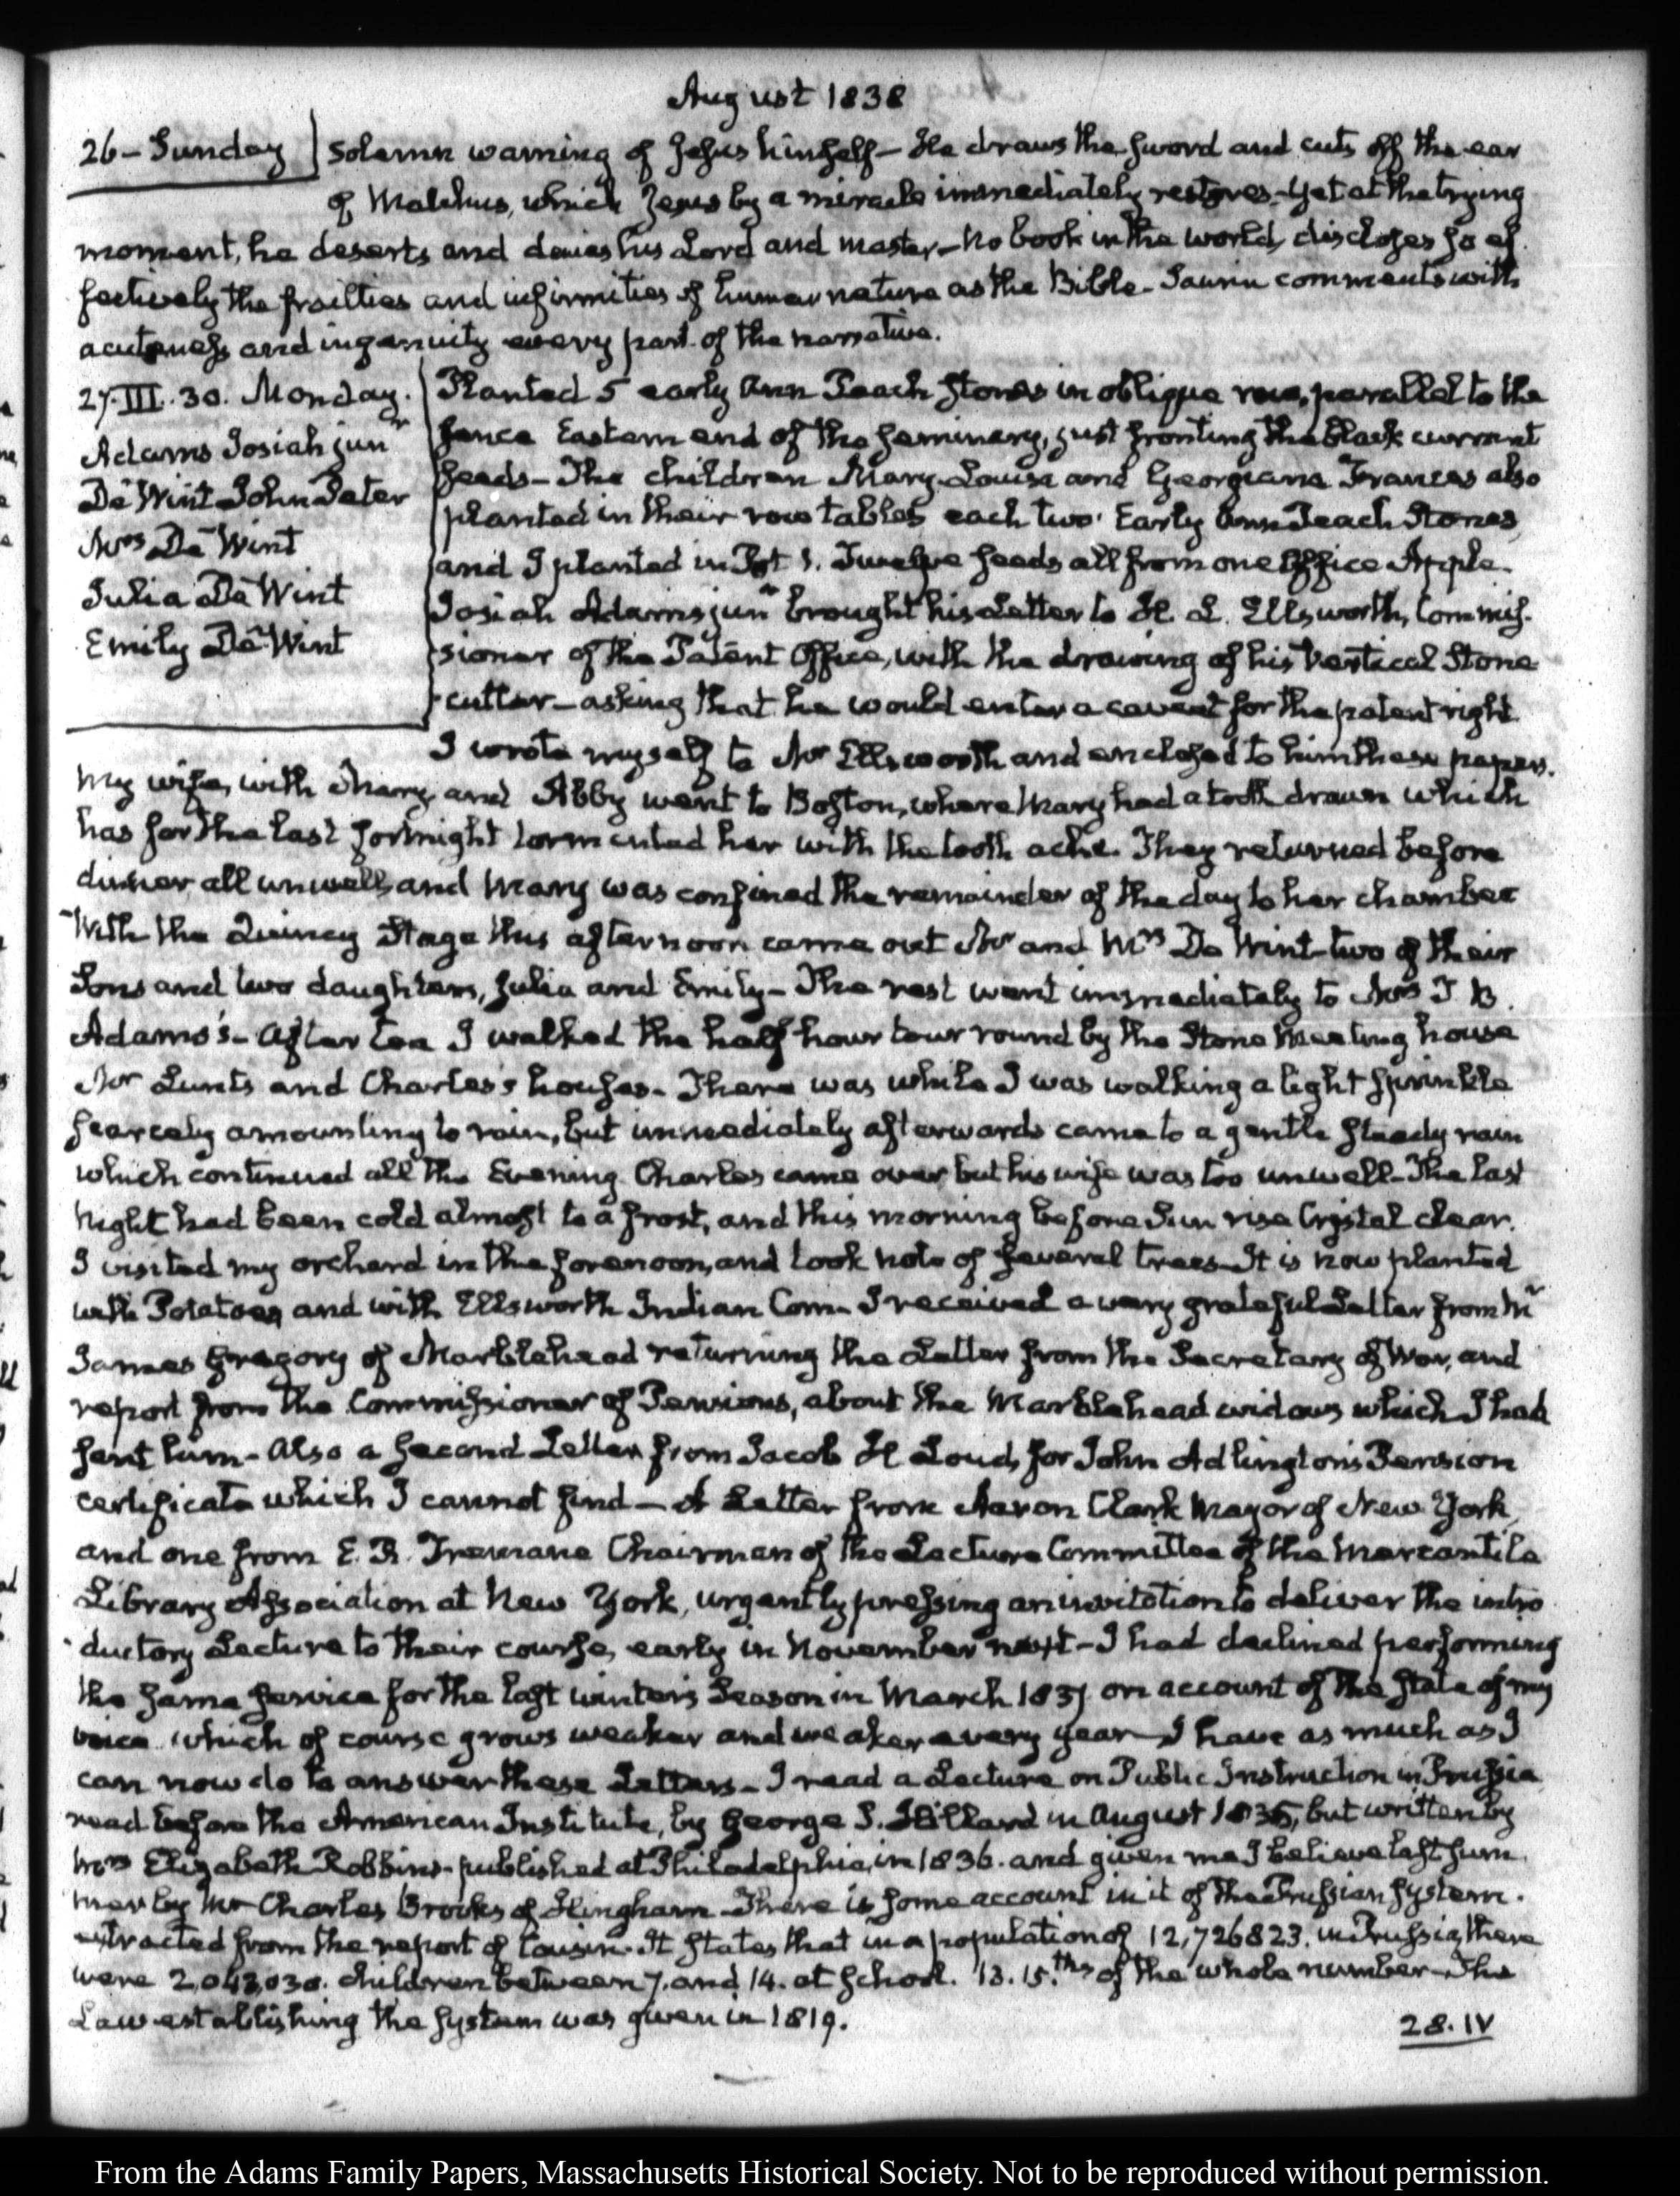 August 1838
26 – Sunday
solemn warning of Jesus himself – He draws the sword and cuts off the ear
of Malchus, which Jesus by a miracle immediately restores – Yet at the trying
moment, he deserts and denies his Lord and master – No book in the world, discloses so ef
fectively the frailties and infirmities of human nature as the Bible – Saurin comments with
acuteness and ingenuity every part of the narrative.
27. III. 30. Monday.
Adams Josiah junr
De Wint John Peter
Mrs De Wint
Julia De Wint
Emily De Wint
Planted 5 early Ann Peach stones in oblique row, parallel to the
fence Eastern end of the Seminary, just fronting the black currant
seeds – The children Mary-Louisa and Georgiana Frances also
planted in their row tables each two Early Ann Peach Stones
and I planted in Pot 1. Twelve seeds all from one Office Apple.
Josiah Adams junr brought his Letter to H. L. Ellsworth, Commis-
sioner of the Patent Office, with the drawing of his Vertical Stone
cutter – asking that he would enter a caveat for the patent right
I wrote myself to Mr Ellsworth and enclosed to him these papers.
My wife, with Mary and Abby went to Boston, where Mary had a tooth drawn which
has for the last fortnight tormented her with the tooth ache. They returned before
dinner all unwell, and Mary was confined the remainder of the day to her chamber
With the Quincy Stage this afternoon came out Mr and Mrs De Wint – two of their
Sons and two daughters, Julia and Emily – The rest went immediately to Mrs T. B.
Adams's – After tea I walked the half hour tour round by the Stone Meeting house
Mr Lunts and Charles's houses – There was while I was walking a light sprinkle
scarcely amounting to rain, but immediately afterwards came to a gentle steady rain
which continued all the Evening. Charles came over but his wife was too unwell – The last
Night had been cold almost to a frost, and this morning before Sun rise Crystal clear.
I visited my orchard in the forenoon, and took note of several trees – It is now planted
with Potatoes and with Ellsworth Indian Corn – I received a very grateful Letter from Mr
James Gregory of Marblehead returning the Letter from the Secretary of War, and
report from the Commissioner of Pensions, about the Marblehead widows which I had
sent him – Also a second Letter from Jacob H Loud, for John Adlington's Pension
certificate which I cannot find – A Letter from Aaron Clark Mayor of New York
and one from E. R. Tremaine Chairman of the Lecture Committee of the Mercantile
Library Association at New York, urgently pressing an invitation to deliver the intro
ductory Lecture to their course, early in November next – I had declined performing
the same service for the last winter's Season in March 1837 on account of the state of my
voice which of course grows weaker and weaker every year – I have as much as I
can now do to answer these Letters – I read a Lecture on Public Instruction in Prussia
read before the American Institute, by George S. Hillard in August 1835, but written by
Mrs Elizabeth Robbins – published at Philadelphia, in 1836. and given me I believe last sum
mer by Mr Charles Brooks of Hingham – There is some account in it of the Prussian system.
extracted from the report of Cousin. It states that in a population of 12,726823. in Prussia, there
were 2,043,030. children between 7. and 14. at school. 13. 15.ths of the whole number – The
Law establishing the system was given in 1819.
28. IV
From the Adams Family Papers, Massachusetts Historical Society. Not to be reproduced without permission.